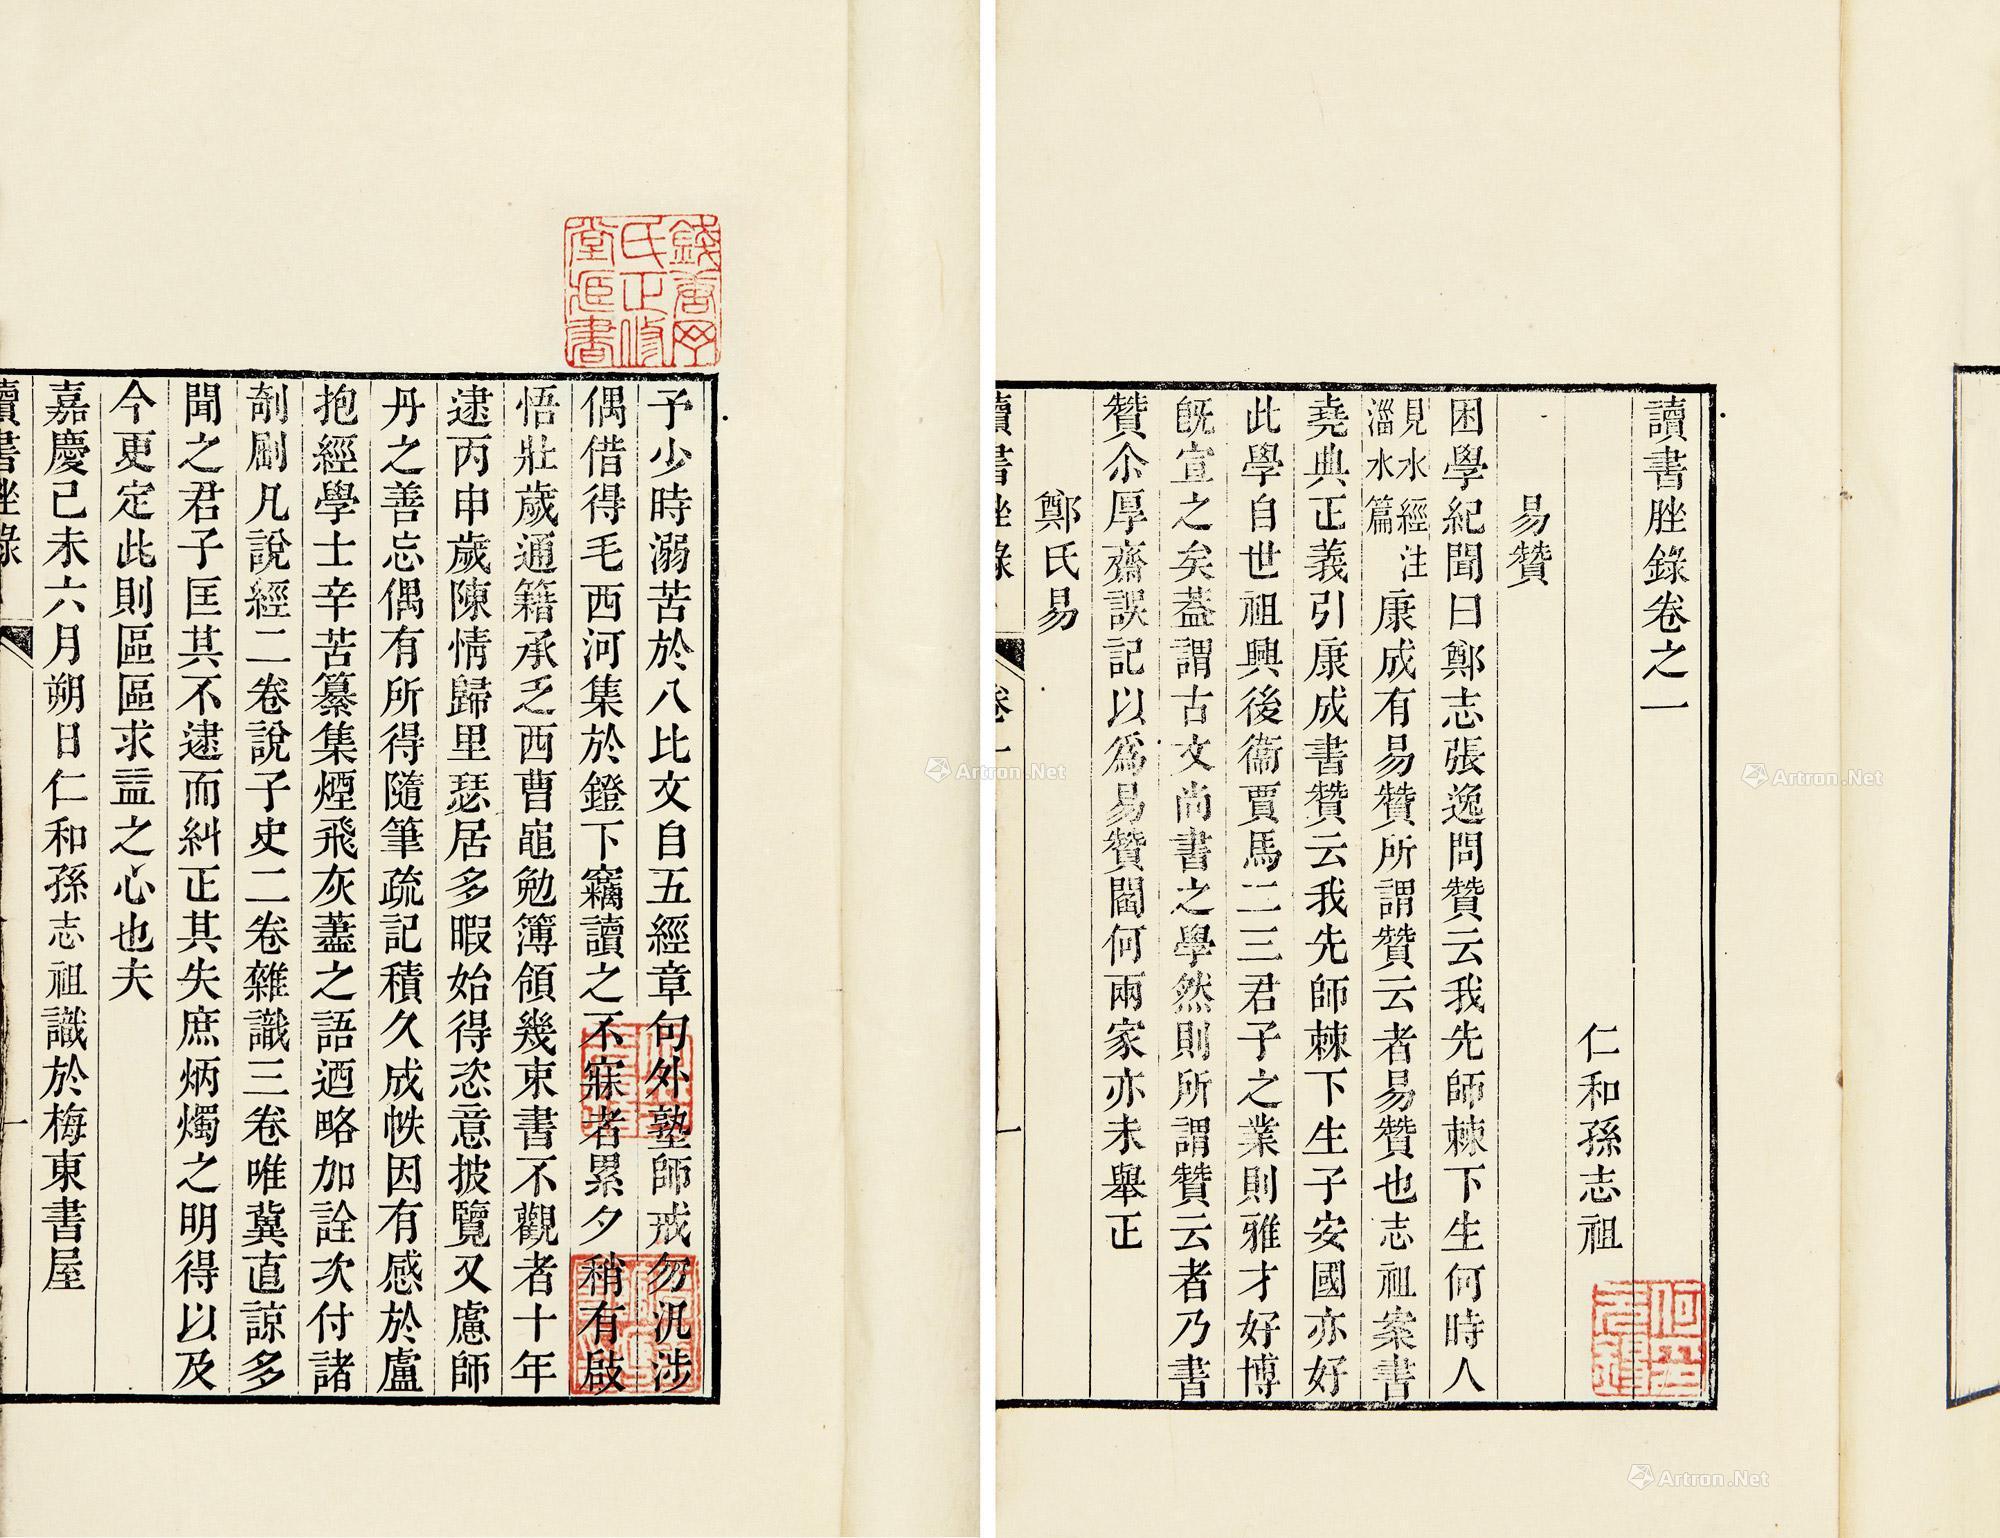 讀書脞錄卷之一
仁和孫志祖
易贊
困學紀聞曰鄭志張逸問贊云我先師棘下生何時人
見水經注
淄水篇
康成有易贊所謂贊云者易贊也志祖案書
堯典正義引康成書贊云我先師棘下生子安國亦好
此學自世祖興後衞賈馬二三君子之業則雅才好博
旣宣之矣葢謂古文尚書之學然則所謂贊云者乃書
贊尒厚齋誤記以爲易贊閻何兩家亦未舉正
鄭氏易
讀書脞錄
卷一
一
錢唐丁氏正修堂臧書
予少時溺苦於八比文自五經章句外塾師戒勿汎涉
偶借得毛西河集於鐙下竊讀之不寐者累夕稍有啟
悟壯歲通籍承乏西曹黽勉簿領幾束書不觀者十年
逮丙申歲陳情歸里瑟居多暇始得恣意披覽又慮師
丹之善忘偶有所得隨筆疏記積久成帙因有感於盧
抱經學士辛苦纂集煙飛灰蓋之語迺略加詮次付諸
剞劂凡說經二卷說子史二卷雜識三卷唯冀直諒多
聞之君子匡其不逮而糾正其失庶炳燭之明得以及
今更定此則區區求益之心也夫
嘉慶己未六月朔日仁和孫志祖識於梅東書屋
讀書脞錄
一
Artron.Net
Artron.Net
Artron.Net